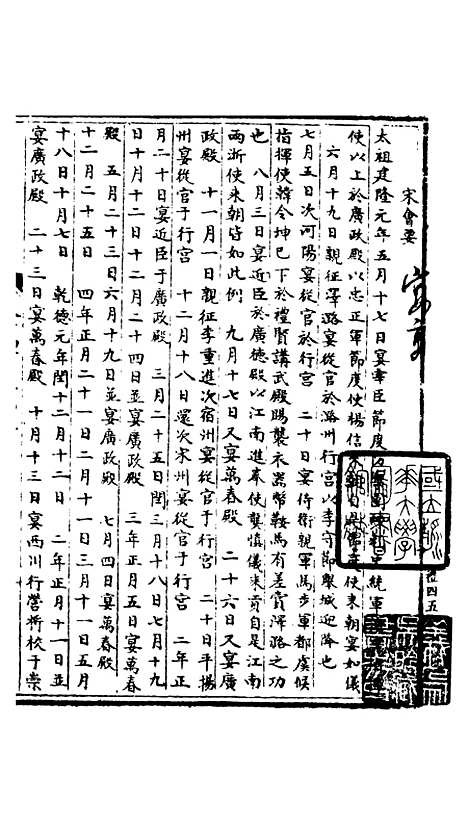 宋會要
宴享
太祖建隆元年五月十七日宴宰臣節度
使以上於廣政殿以忠正軍節度使楊信來朝自是節度使來朝宴如儀
六月十九日親征澤潞宴從官於潞州行宮以李守節舉城迎降也
七月五日次河陽宴從官於行宮　二十日宴侍衛親軍馬步軍都虞候
指揮使韓令坤巳下於禮賢講武殿賜襲衣器幣鞍馬有差賞澤潞之功
也　八月三日宴近臣於廣德殿以江南進奉使龔慎儀來貢自是江南
兩浙使來朝皆如此例　九月十七日又宴萬春殿　二十六日又宴廣
政殿　十一月一日親征李重進次宿州宴從官于行宮　二十日平揚
州宴從官于行宮　十二月十八日還次宋州宴從官于行宮　二年正
月二十日宴近臣于廣政殿　三月二十五日閏三月十八日七月十九
日十月十二日十二月二十四日並宴廣政殿　三年正月五日宴萬春
殿　五月二十三日六月十九日並宴廣政殿　七月四日宴萬春殿
十二月二十五日　四年正月二十一日二月十一日三月十一日五月
十八日十月七日　乾德元年閏十二月十二日　二年正月十一日並
宴廣政殿　二十三日宴萬春殿　十月十三日宴西川行營將校于崇
禮四五
國立